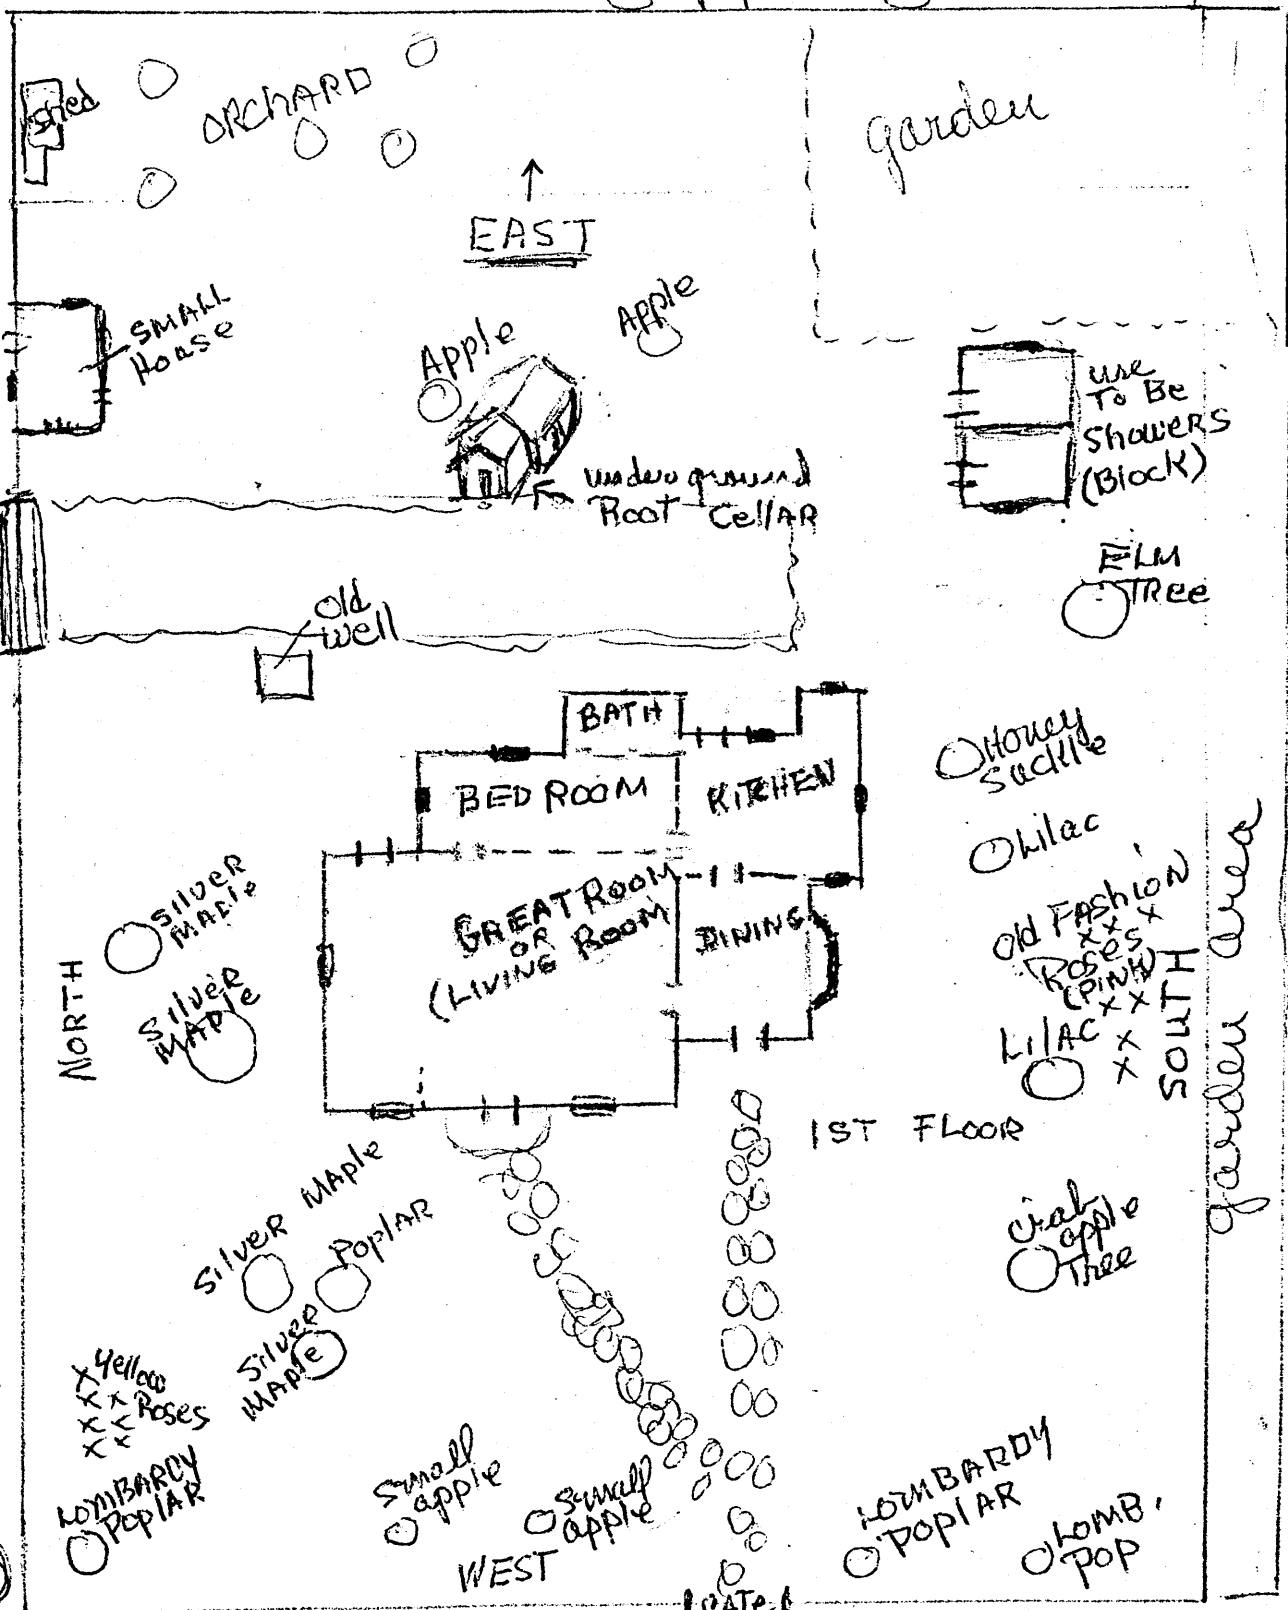 shed
ORCHARD
garden
EAST
SMALL
House
Apple
Apple
use
To Be
Showers
(Block)
underground
Root Cellar
ELM
TRee
Old
Well
BATH
BED ROOM
KITCHEN
Honey
Suckle
Lilac
SILVER
MAPLE
GREAT ROOM
OR
(LIVING ROOM
DINING
Old FASHION
Roses
(PINK)
SOUTH
garden area
NORTH
SILVER
MAPLE
LilAC
1ST FLOOR
Silver Maple
PoplAR
Crab
apple
Tree
Silver
MAple
Yellow
Roses
LOMBARDY
PoplAR
Small
apple
Small
apple
LOMBARDY
POPlAR
LOMB.
POP
WEST
GATE